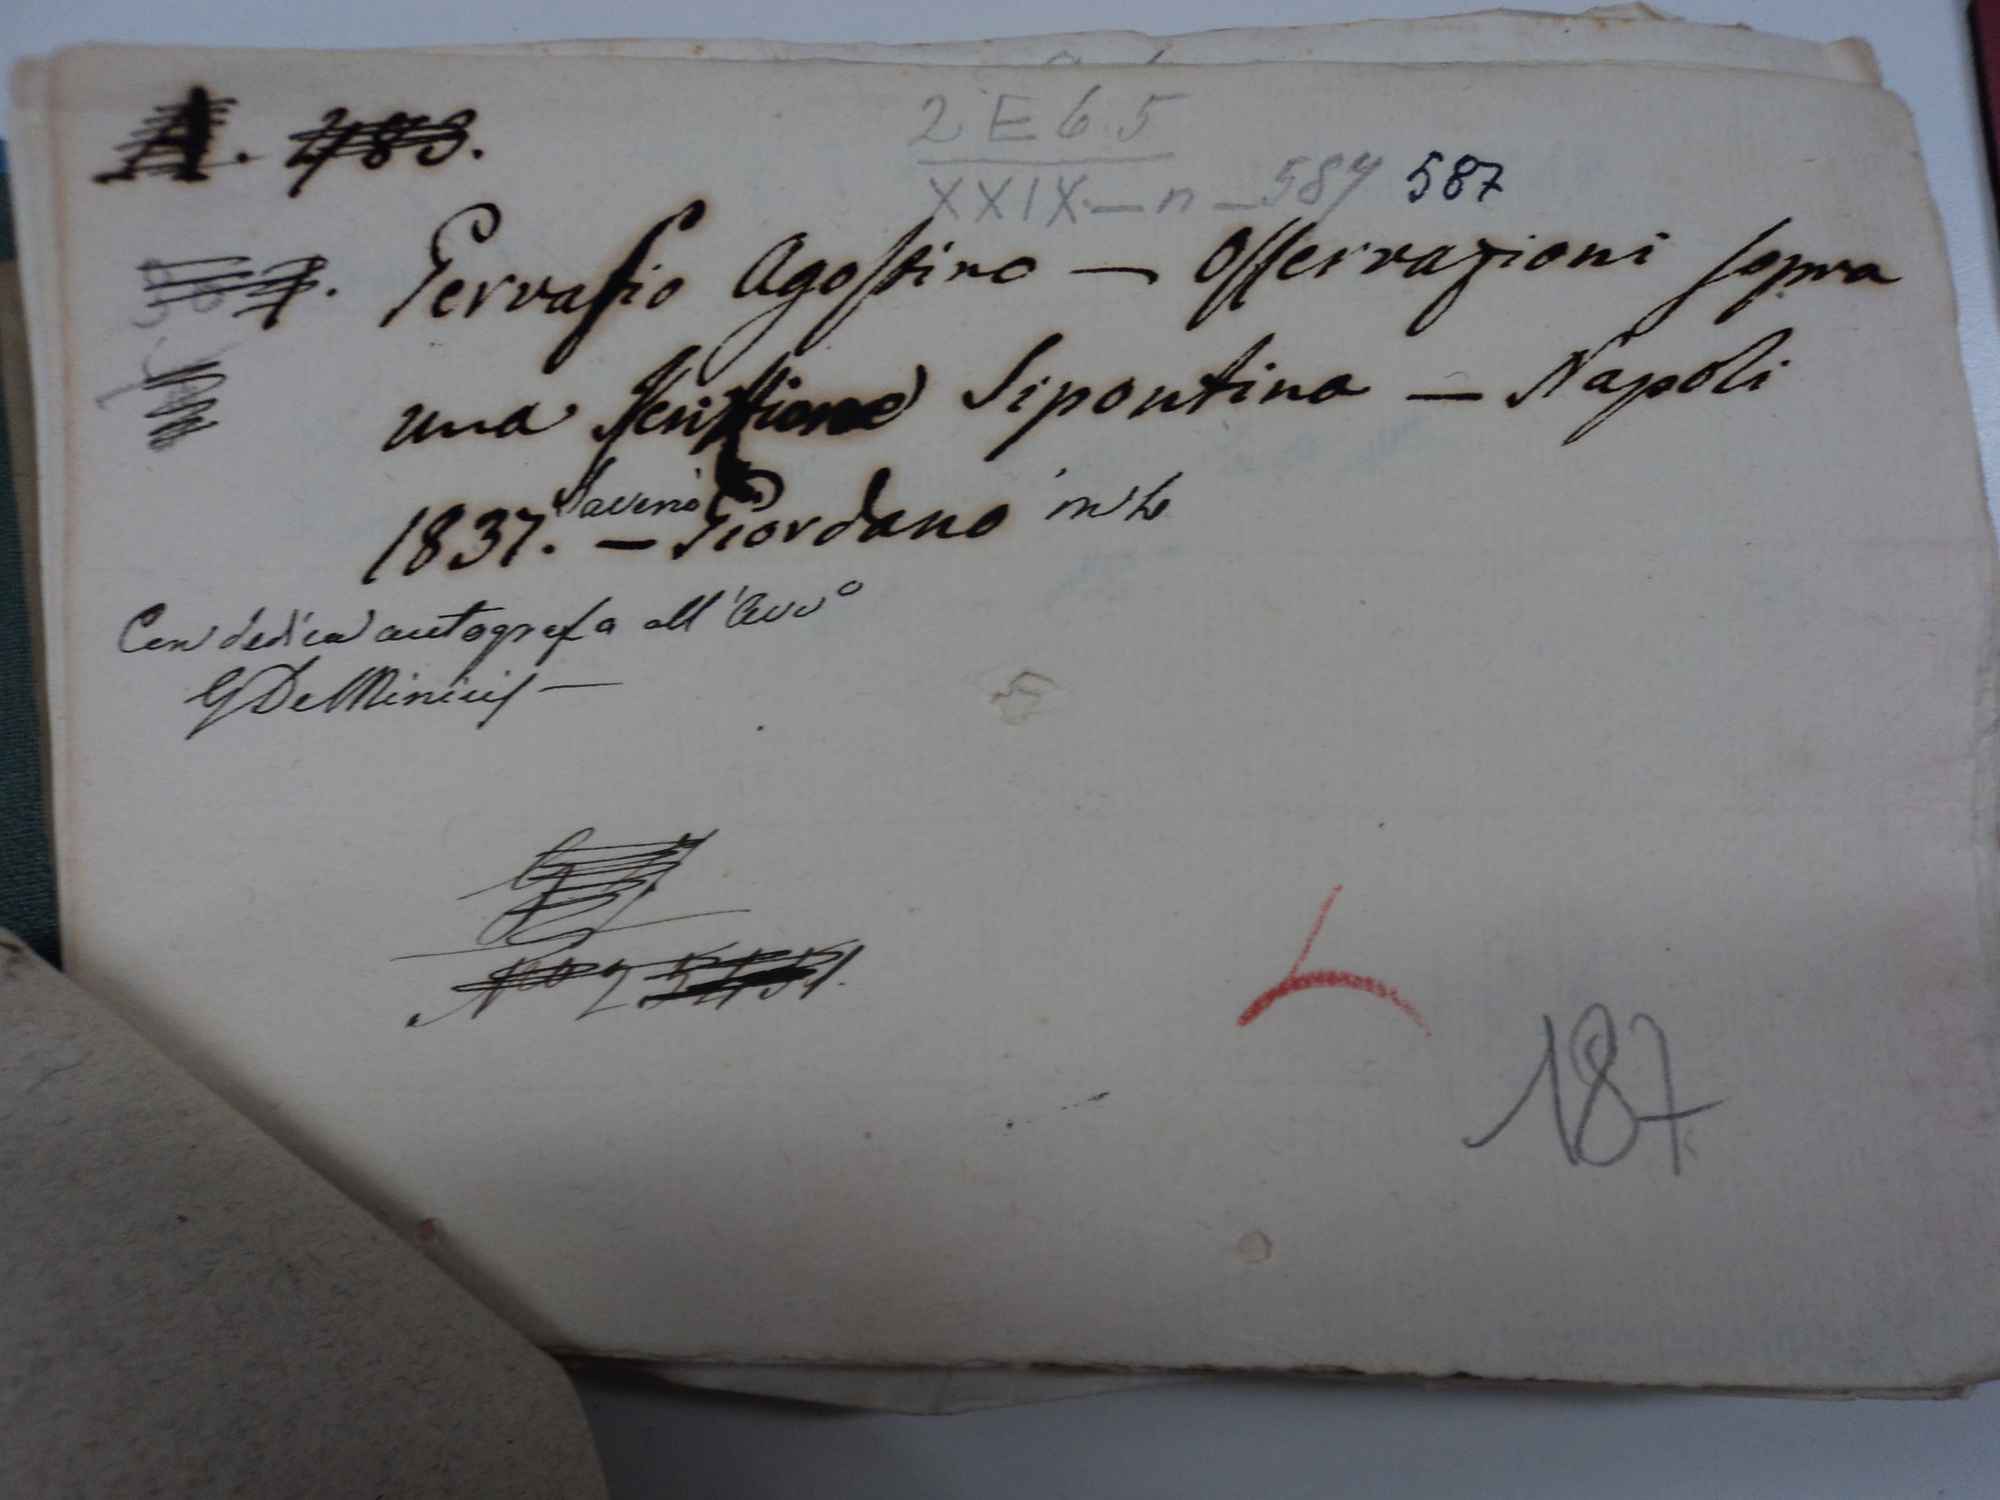 A. 483.
2 E 6.5
XXIX — n — 587 587
7. Gervasio Agostino — Osservazioni sopra
una Iscrizione Sipontina — Napoli
1837. — Saverio Giordano in 4o
Con dedica autografa all'Avvo
G De Minicis —
187